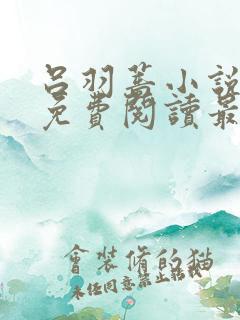 呂羽蓋小說
免費閱讀最
會裝脩的猫
未经同意禁止转载